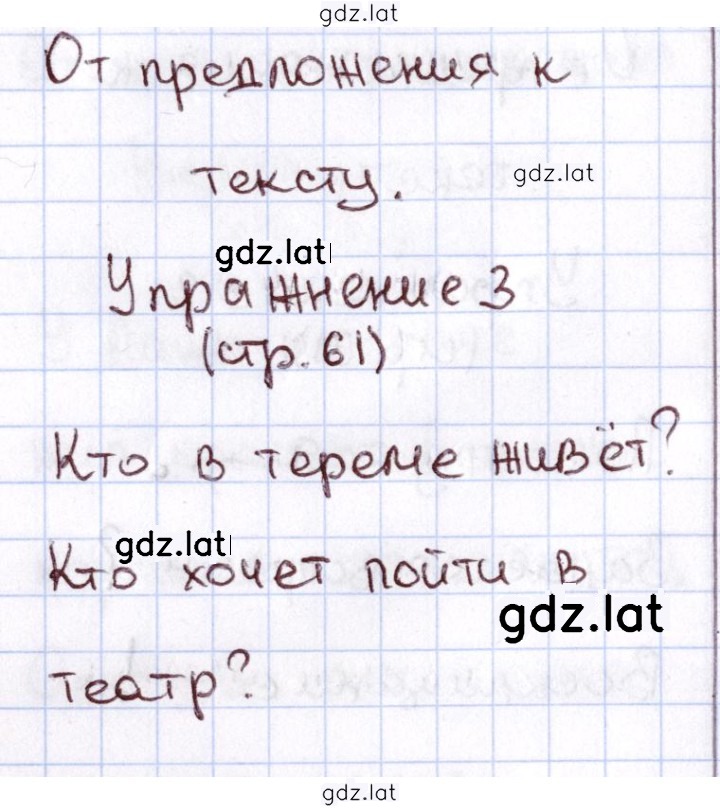 gdz.lat
От предложения к
тексту.
gdz.lat
gdz.lat
Упражнение 3
(стр. 61)
Кто в тереме живёт?
gdz.lat
Кто хочет пойти в
gdz.lat
театр?
gdz.lat